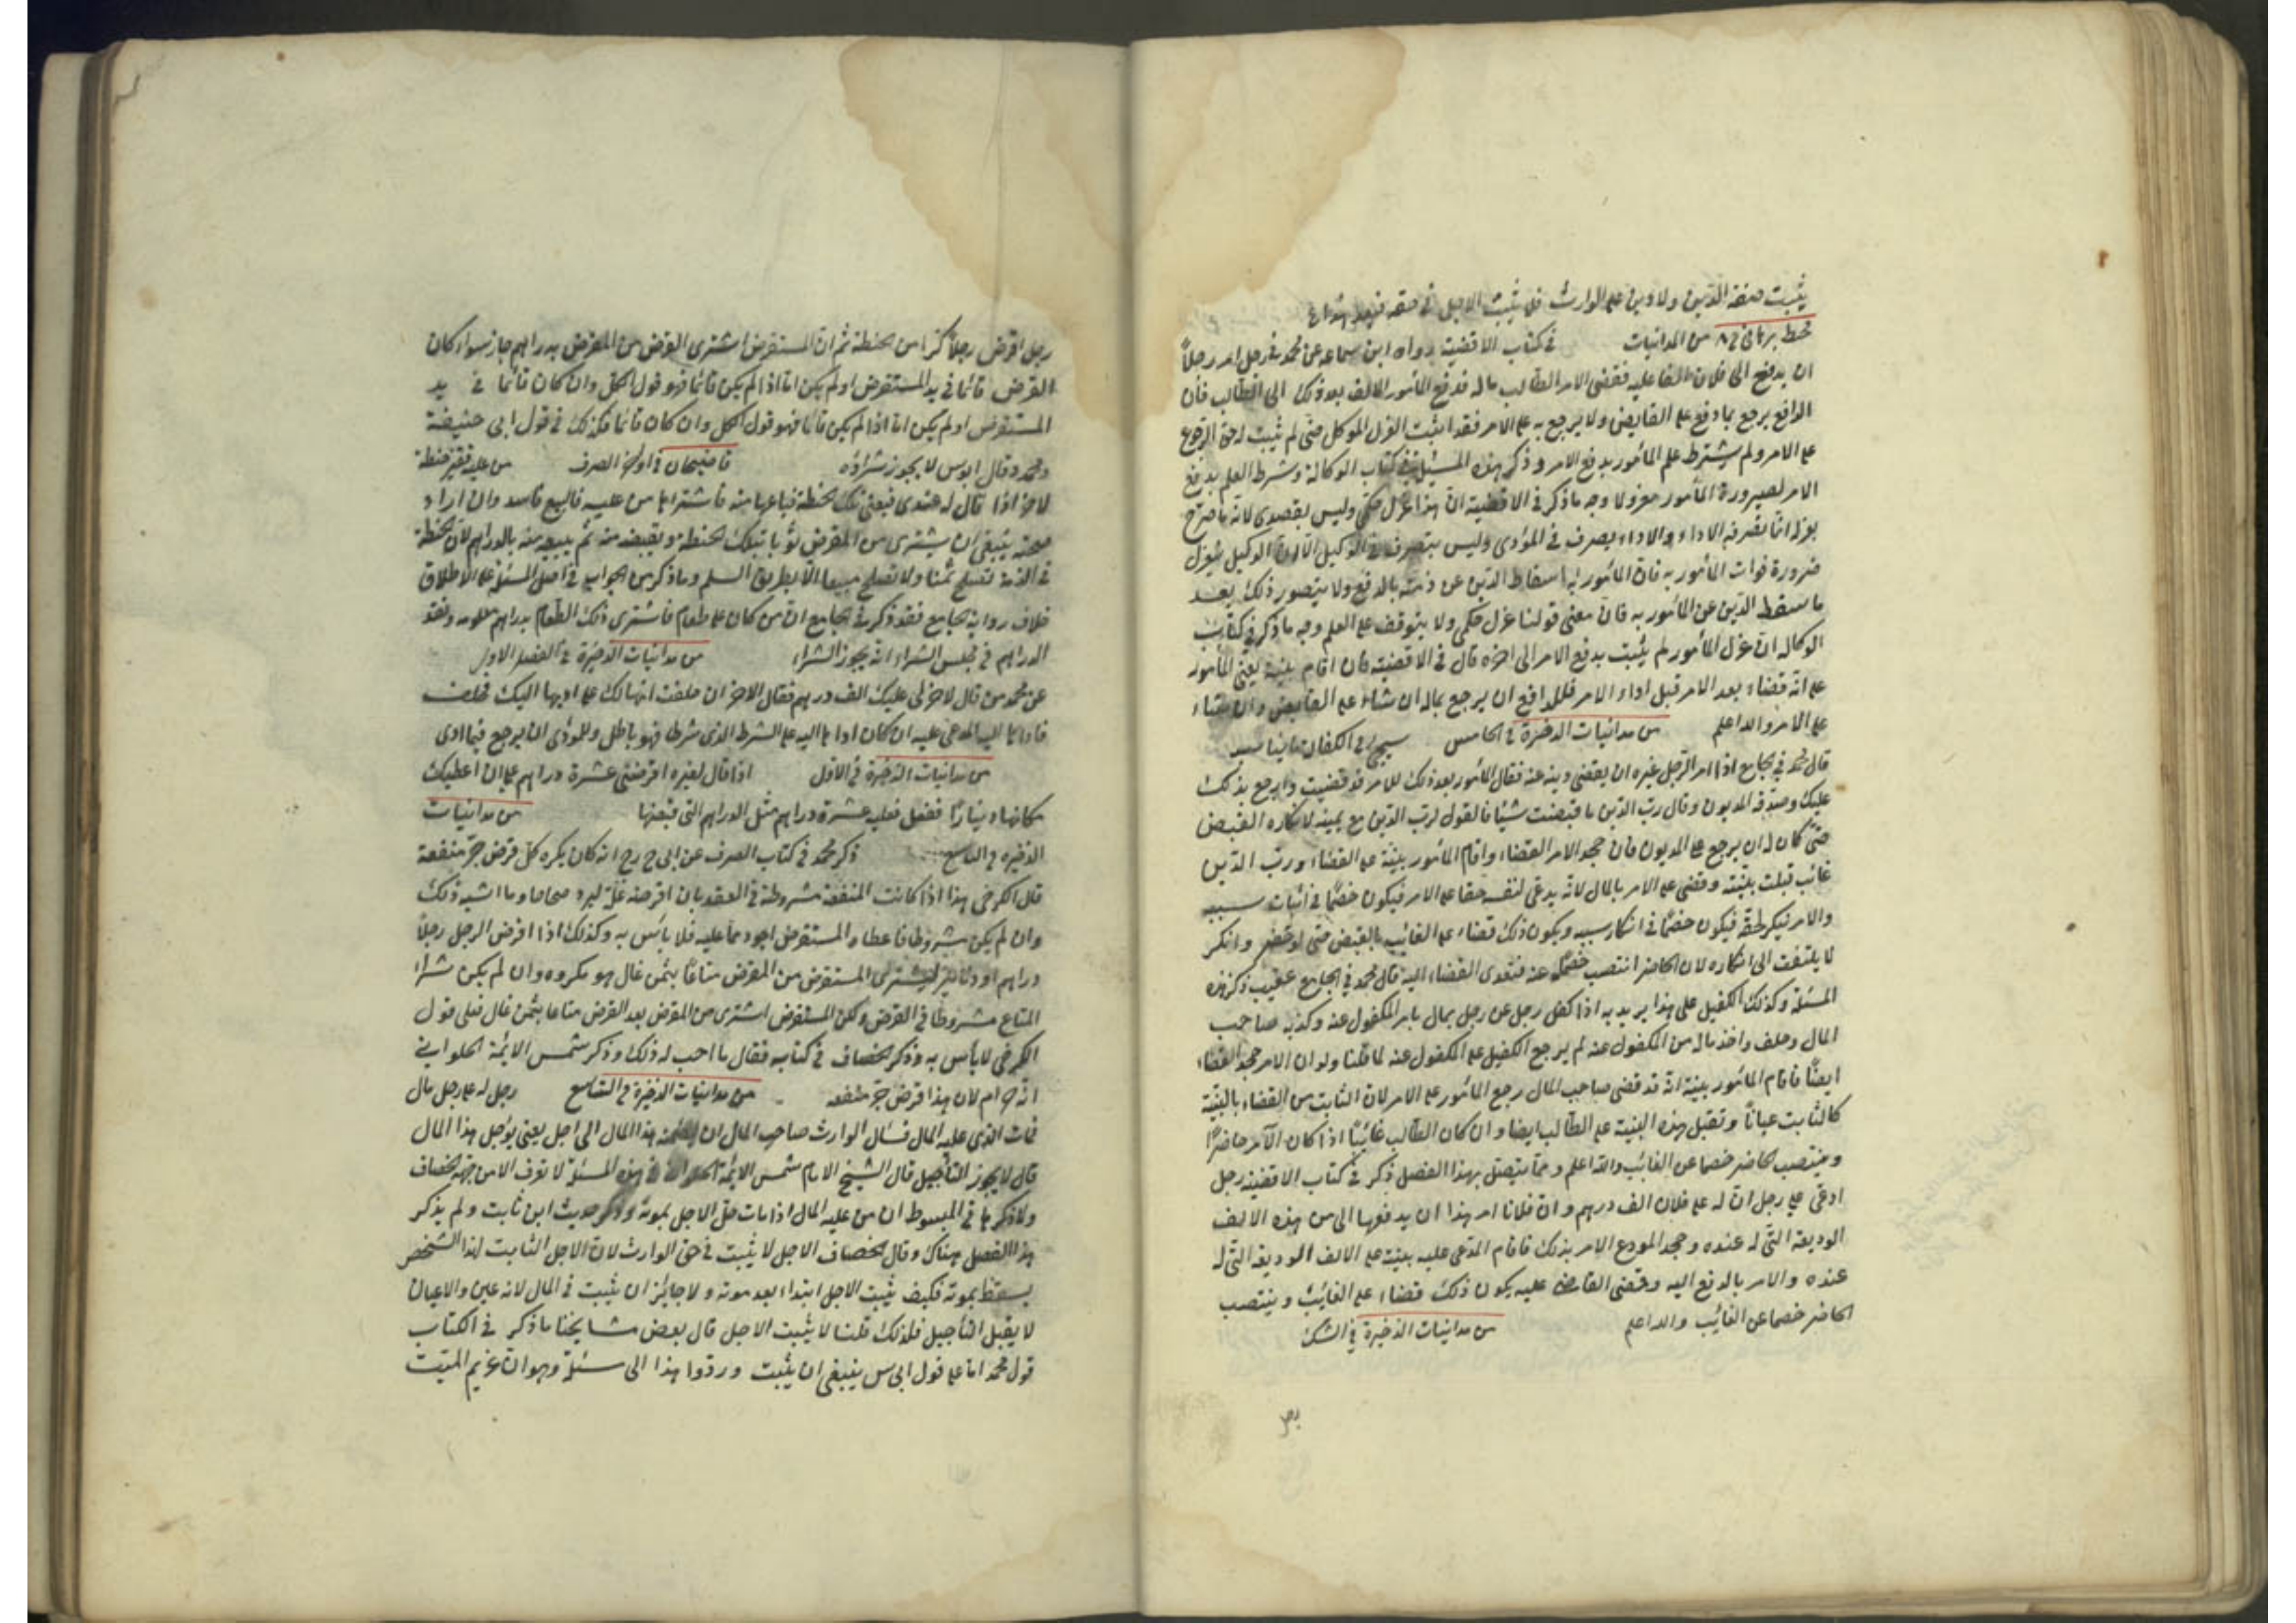 يثبت صفة الدين ولا دين على الوارث فلا يثبت الاجل في حقه
محيط برهاني من المداينات في كتاب الاقضية رواه ابن سماعه عن محمد في رجل امر رجلاً
ان يدفع الى فلان الفا عليه فقضى الامر الطالب ماله فدفع المأمور الالف بعد ذلك الى الطالب فان
الدافع يرجع بما دفع على القابض ولا يرجع به على الامر فقد اثبت العزل الموكل حتى لم يثبت له حق الرجوع
على الامر ولم يشترط علم المأمور بدفع الامر وذكر هذه المسئلة في كتاب الوكالة وشرط العلم بدفع
الامر لصيرورة المأمور معزولا وجه ما ذكر في الاقضية ان هذا عزل حكمي وليس بقصدي لانه ما صرح
بعزله انما تصرفه الاداء والاداء يصرف في المؤدى وليس بتصرف في الوكيل الا ان الوكيل يعزل
ضرورة فوات المأمور به فان المأمور به اسقاط الدين عن ذمته بالدفع ولا يتصور ذلك بعد
ما سقط الدين عن المأمور به فان معنى قولنا عزل حكمي ولا يتوقف على العلم وجه ما ذكر في كتاب
الوكاله ان عزل المأمور لم يثبت بدفع الامر الى اخره قال في الاقضية فان اقام بينة يعني المأمور
على انه قضاه بعد الامر قبل اداء الامر فللدافع ان يرجع بماله ان شاء على القابض وان شاء
على الامر والله اعلم من مداينات الذخيرة في الخامس سيجئ في الكفالة
قال محمد في الجامع اذا امر الرجل غيره ان يقضي دينه عنه فقال المأمور بعد ذلك للامر قد قضيت وارجع بذلك
عليك وصدقه المديون وقال رب الدين ما قبضت شيئا فالقول لرب الدين مع يمينه لانكاره القبض
حتى كان له ان يرجع على المديون فان جحد الامر القضاء واقام المأمور بينة على القضاء ورب الدين
غائب قبلت بينته وقضى على الامر بالمال لانه يدعى لنفسه حقا على الامر فيكون خصما في اثبات سببه
والامر ينكر حقه فيكون خصما في انكار سببه ويكون ذلك قضاء على الغائب بالقبض حتى لو حضر وانكر
لا يلتفت الى انكاره لان الحاضر انتصب خصما عنه فتعدى القضاء اليه قال محمد في الجامع عقيب ذكر هذه
المسئلة وكذلك الكفيل على هذا يريد به اذا كفل رجل عن رجل بمال بامر المكفول عنه وكذبه صاحب
المال وحلف واخذ ماله من المكفول عنه لم يرجع الكفيل على المكفول عنه لما قلنا ولو ان الامر جحد القضاء
ايضًا فاقام المأمور بينة انه قد قضى صاحب المال رجع المأمور على الامر لان الثابت من القضاء بالبينة
كالثابت عيانًا وتقبل هذه البينة على الطالب ايضا وان كان الطالب غائبًا اذا كان الآمر حاضرًا
وينتصب الحاضر خصما عن الغائب والله اعلم ومما يتصل بهذا الفصل ذكر في كتاب الاقضية رجل
ادعى على رجل ان له على فلان الف درهم وان فلانا امر هذا ان يدفعها الى من هذه الالف
الوديعة التي له عنده وجحد المودع الامر بذلك فاقام المدعى عليه بينة على الالف الوديعة التي له
عنده والامر بالدفع اليه وقضى القاضى عليه يكون ذلك قضاء على الغائب وينتصب
الحاضر خصما عن الغائب والله اعلم من مداينات الذخيرة في
رجل
رجل اقرض رجلاً كرا من الحنطة ثم ان المستقرض اشترى القرض من المقرض بدراهم جاز سواء كان
القرض قائما في يد المستقرض او لم يكن اما اذا لم يكن قائما فهو قول الكل وان كان قائما في يد
المستقرض او لم يكن اما اذا لم يكن قائما فهو قول الكل وان كان قائما فكذلك في قول ابى حنيفة
ومحمد وقال ابو س لا يجوز شراؤه قاضيخان في اول الصرف من عليه قفيز حنطة
لاخر اذا قال له عندى فبعنى تلك الحنطة فباعها منه فاشتراها من عليه فالبيع فاسد وان اراد
صحته ينبغي ان يشترى من المقرض ثوبا بتلك الحنطة ويقبضه منه ثم يبيعه منه بالدراهم لان الحنطة
في الذمة تصلح ثمنا ولا تصلح مبيعا الا بطريق السلم وما ذكر من الجواب في اصل المسئلة على الاطلاق
خلاف رواية الجامع فقد ذكر في الجامع ان من كان على طعام فاشترى ذلك الطعام بدراهم معلومه ونقد
الدراهم في مجلس الشراء انه يجوز الشراء من مداينات الذخيرة في الفصل الاول
عن محمد من قال لاخر لى عليك الف درهم فقال الاخر ان حلفت انها لك على اديها اليك فحلف
فاداها اليه المدعى عليه ان كان اداها اليه على الشرط الذى شرطا فهو باطل وللمؤدى ان يرجع فيما ادى
من مداينات الذخيرة في الاول اذا قال لغيره اقرضنى عشرة دراهم على ان اعطيك
مكانها دينارًا ففعل فعليه عشرة دراهم مثل الدراهم التى قبضها من مداينات
الذخيره في التاسع ذكر محمد في كتاب الصرف عن ابى ح رح انه كان يكره كل قرض جر منفعة
قال الكرخى هذا اذا كانت المنفعة مشروطة في العقد بان اقرضه غلة ليرد صحاحا وما اشبه ذلك
وان لم يكن مشروطا فاعطاه المستقرض اجود مما عليه فلا بأس به وكذلك اذا اقرض الرجل رجلاً
دراهم او دنانير ليشترى المستقرض من المقرض متاعًا بثمن غال هو مكروه وان لم يكن شراء
المتاع مشروطًا في القرض ولكن المستقرض اشترى من المقرض بعد القرض متاعا بثمن غال فعلى قول
الكرخى لا بأس به وذكر الخصاف في كتابه فقال ما احب له ذلك وذكر شمس الائمة الحلوانى
انه حرام لان هذا قرض جر منفعه من مداينات الذخيرة في التاسع رجل له على رجل مال
فمات الذى عليه المال فسأل الوارث صاحب المال ان هذا المال الى اجل يعنى يؤجل هذا المال
قال لا يجوز التأجيل قال الشيخ الامام شمس الائمة الحلوانى هذه المسئلة لا تعرف الا من جهة الخصاف
وما ذكرها في المبسوط ان من عليه المال اذا مات حل الاجل بموته وذكر حديث ابن ثابت ولم يذكر
هذا الفصل هناك وقال الخصاف الاجل لا يثبت في حق الوارث لان الاجل الثابت لهذا الشخص
يسقط بموته فكيف يثبت الاجل ابتداء بعد موته ولا جايز ان يثبت في المال لانه عين والاعيان
لا يقبل التأجيل فلذلك قلنا لا يثبت الاجل قال بعض مشايخنا ما ذكر في الكتاب
قول محمد اما على قول ابى س ينبغى ان يثبت وردوا هذا الى مسئلة وهو ان غريم الميت